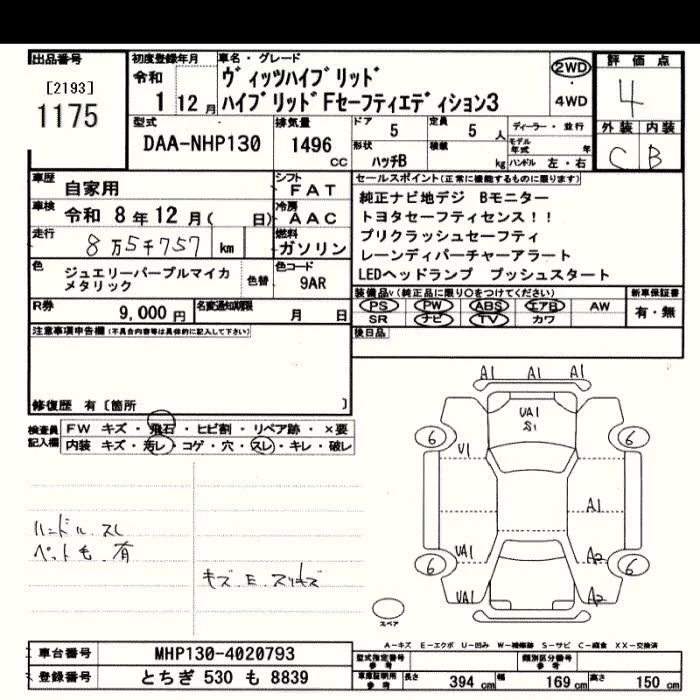 出品番号
[2193]
1175
初度登録年月
令和
1 12月
車名・グレード
ヴィッツハイブリッド
ハイブリッドFセーフティエディション3
2WD
・
4WD
評価点
4
外装 内装
C B
型式
DAA-NHP130
排気量
1496
CC
ドア
5
定員
5 人
ディーラー・並行
形状
ハッチB
積載
kg
モデル年式 年
ハンドル 左・右
車歴
自家用
シフト
FAT
車検
令和 8年12月( 日)
冷房
AAC
走行
8万5千757 km
燃料
ガソリン
色
ジュエリーパープルマイカ
メタリック
色替
色コード
9AR
R券
9,000 円
名変通知期限
月 日
セールスポイント(正常に機能するものに限ります)
純正ナビ地デジ Bモニター
トヨタセーフティセンス!!
プリクラッシュセーフティ
レーンディパーチャーアラート
LEDヘッドランプ プッシュスタート
装備品v(純正品に限り○をつけてください)
PS PW ABS エアB AW
SR ナビ TV カワ
新車保証書
有・無
後日品
注意事項申告欄(不具合内容等は具体的に記入して下さい)
修復歴 有〔箇所 〕
検査員
記入欄
FW キズ・飛石・ヒビ割・リペア跡・×要
内装 キズ・汚レ・コゲ・穴・スレ・キレ・破レ
ハンドル スレ
ペット毛 有
キズ E スリキズ
A1 A1 A1
UA1
S1
6 6
U1
A1
UA1 A2
6 6
UA1 A2
スペア
A-キズ E-エクボ U-凹み W-補修跡 S-サビ C-腐食 XX-交換済
車台番号
MHP130-4020793
登録番号
とちぎ 530 も 8839
型式指定番号
参考
類別区分番号
参考
車庫証明用
参考
長さ 394 cm 幅 169 cm 高さ 150 cm